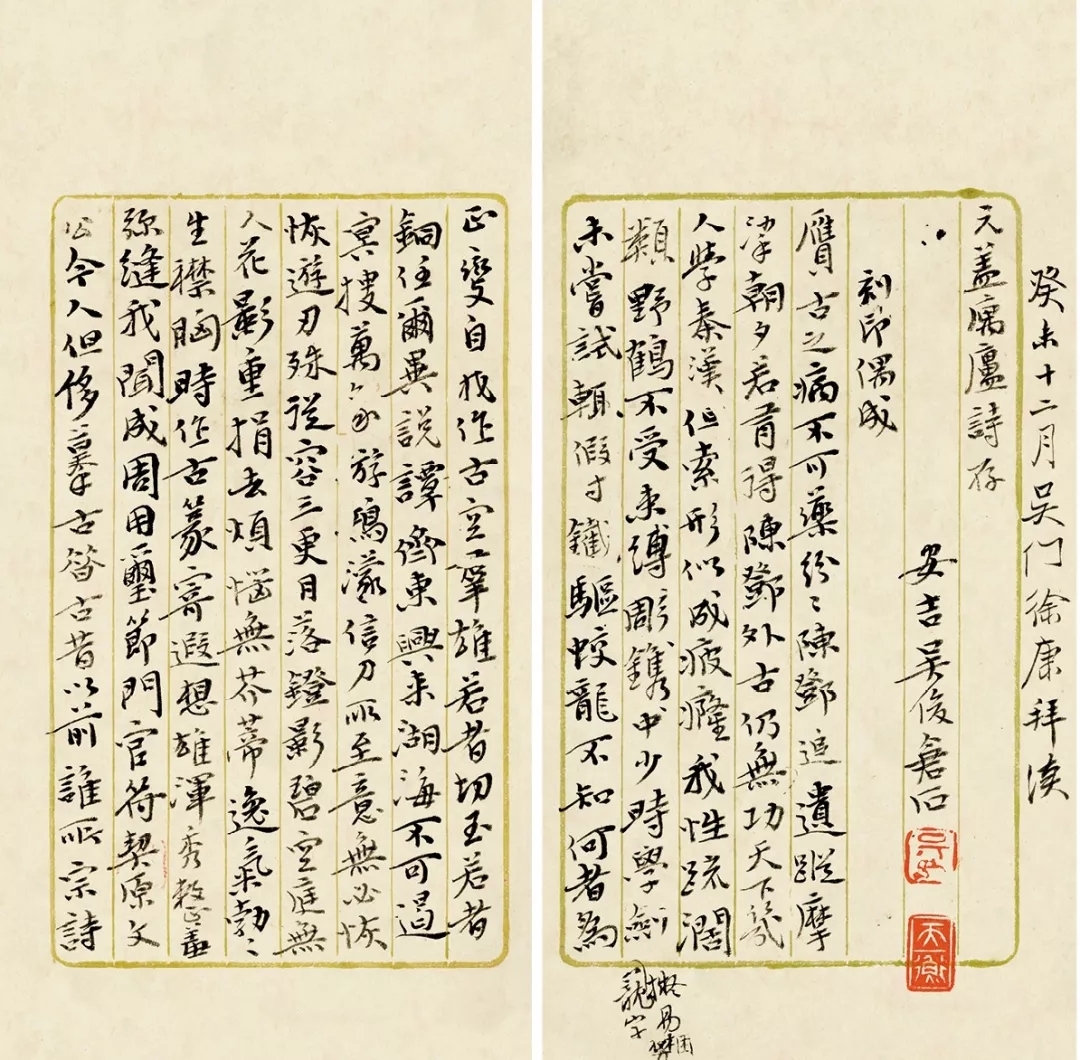 癸未十二月吳門徐康拜讀
元蓋寓廬詩存
安吉吳俊倉石
刻印偶成
贋古之病不可藥紛〻陳鄧追遺蹤摩
挲朝夕若有得陳鄧外古仍無功天下幾
人學秦漢但索形似成疲癃我性疏闊
類野鶴不受束縛雕鐫中少時學劍
未嘗試輒假寸鐵驅蛟龍不知何者為
天衡
正變自我作古空羣雄若者切玉若者
銅任爾異說譚齊東興來湖海不可遏
冥搜萬象游鴻濛信刀所至意無必恢
恢遊刃殊從容三更月落鐙影碧空庭無
人花影重捐去煩惱無芥蒂逸氣勃〻
生襟胸時作古篆寄遐想雄渾秀整羞
彌縫我聞成周用璽節門官符契原文
公今人但侈摹古昔古昔以前誰所宗詩